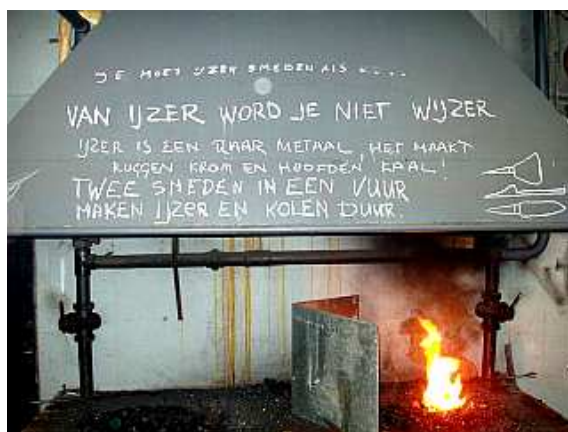 JE MOET IJZER SMEDEN ALS .....
VAN IJZER WORD JE NIET WIJZER
IJZER IS EEN RAAR METAAL, HET MAAKT
RUGGEN KROM EN HOOFDEN KAAL!
TWEE SMEDEN IN EEN VUUR
MAKEN IJZER EN KOLEN DUUR.